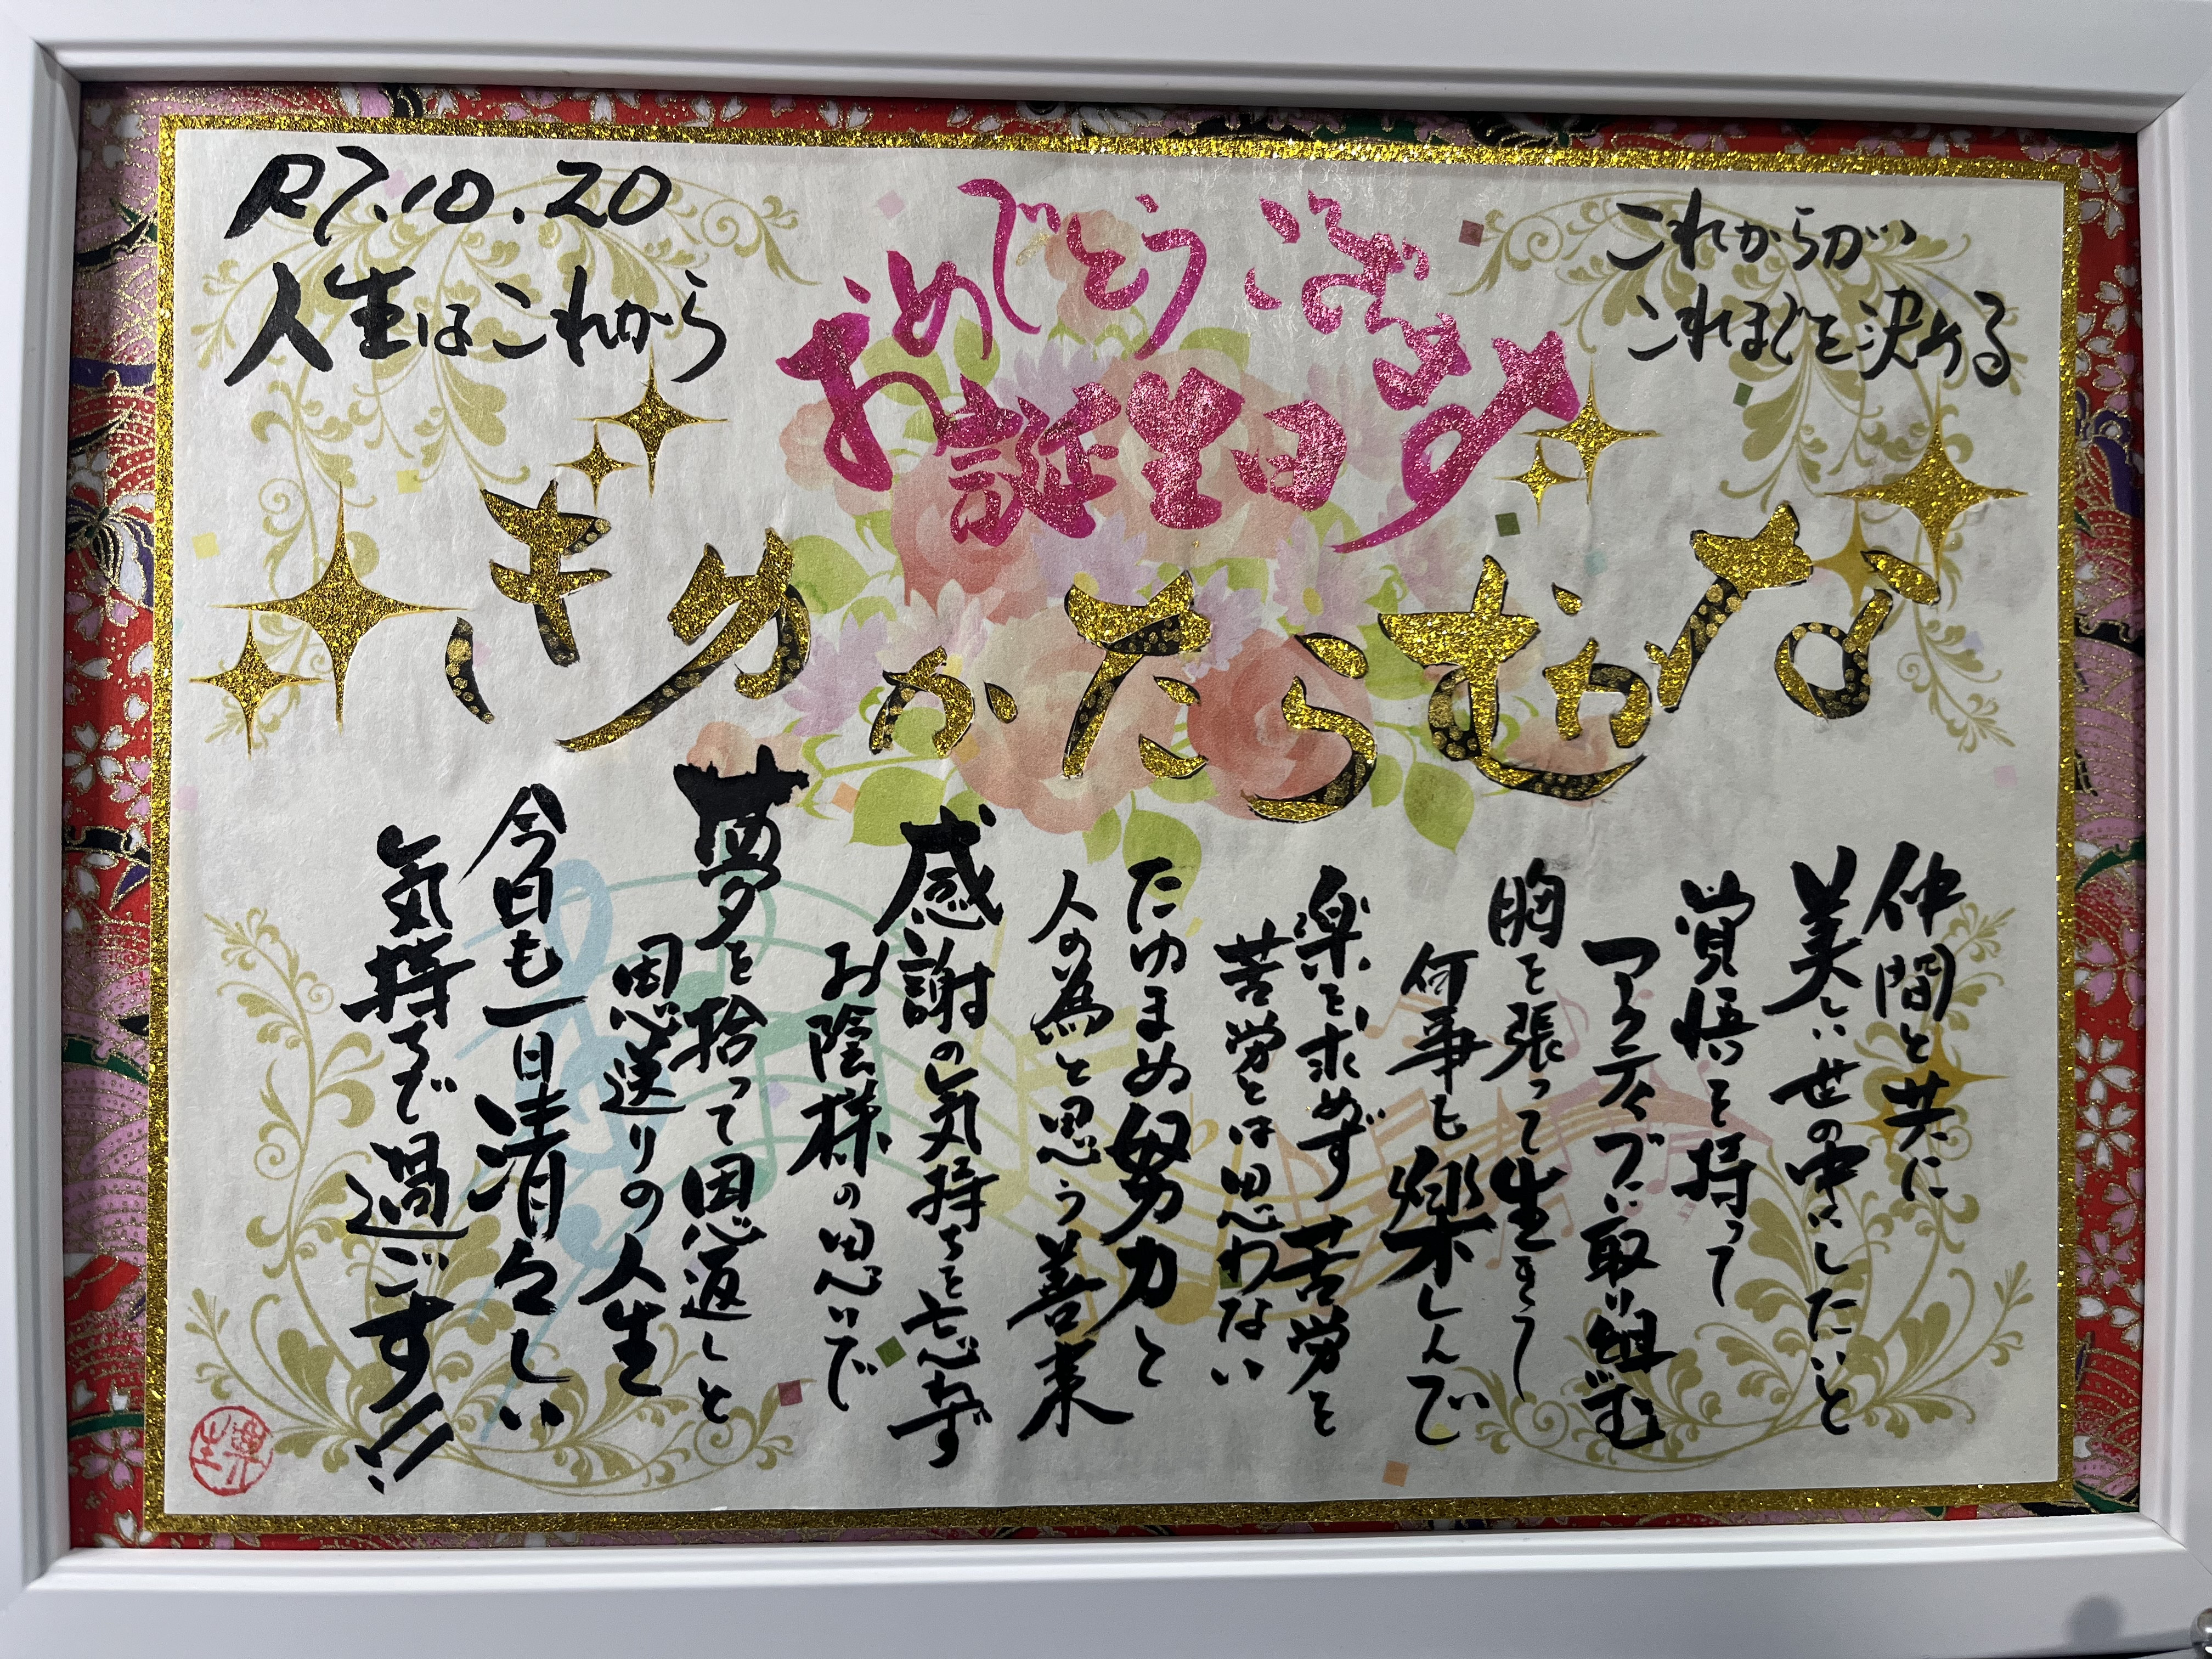 R7.10.20
人生はこれから
おめでとう ございます
誕生日
これからが
これまでを決める
なかむらたかゆき
仲間と共に
美しい世の中にしたいと
覚悟を持って
アクティブに取り組む
胸を張って生きて
何事も楽しんで
楽を求めず苦労を
苦労とは思わない
たゆまぬ努力と
人の為と思う善来
感謝の気持ちを忘れず
お陰様の思いで
夢を拾って恩返しと
恩送りの人生
今日も一日清々しい
気持ちで過ごす!!